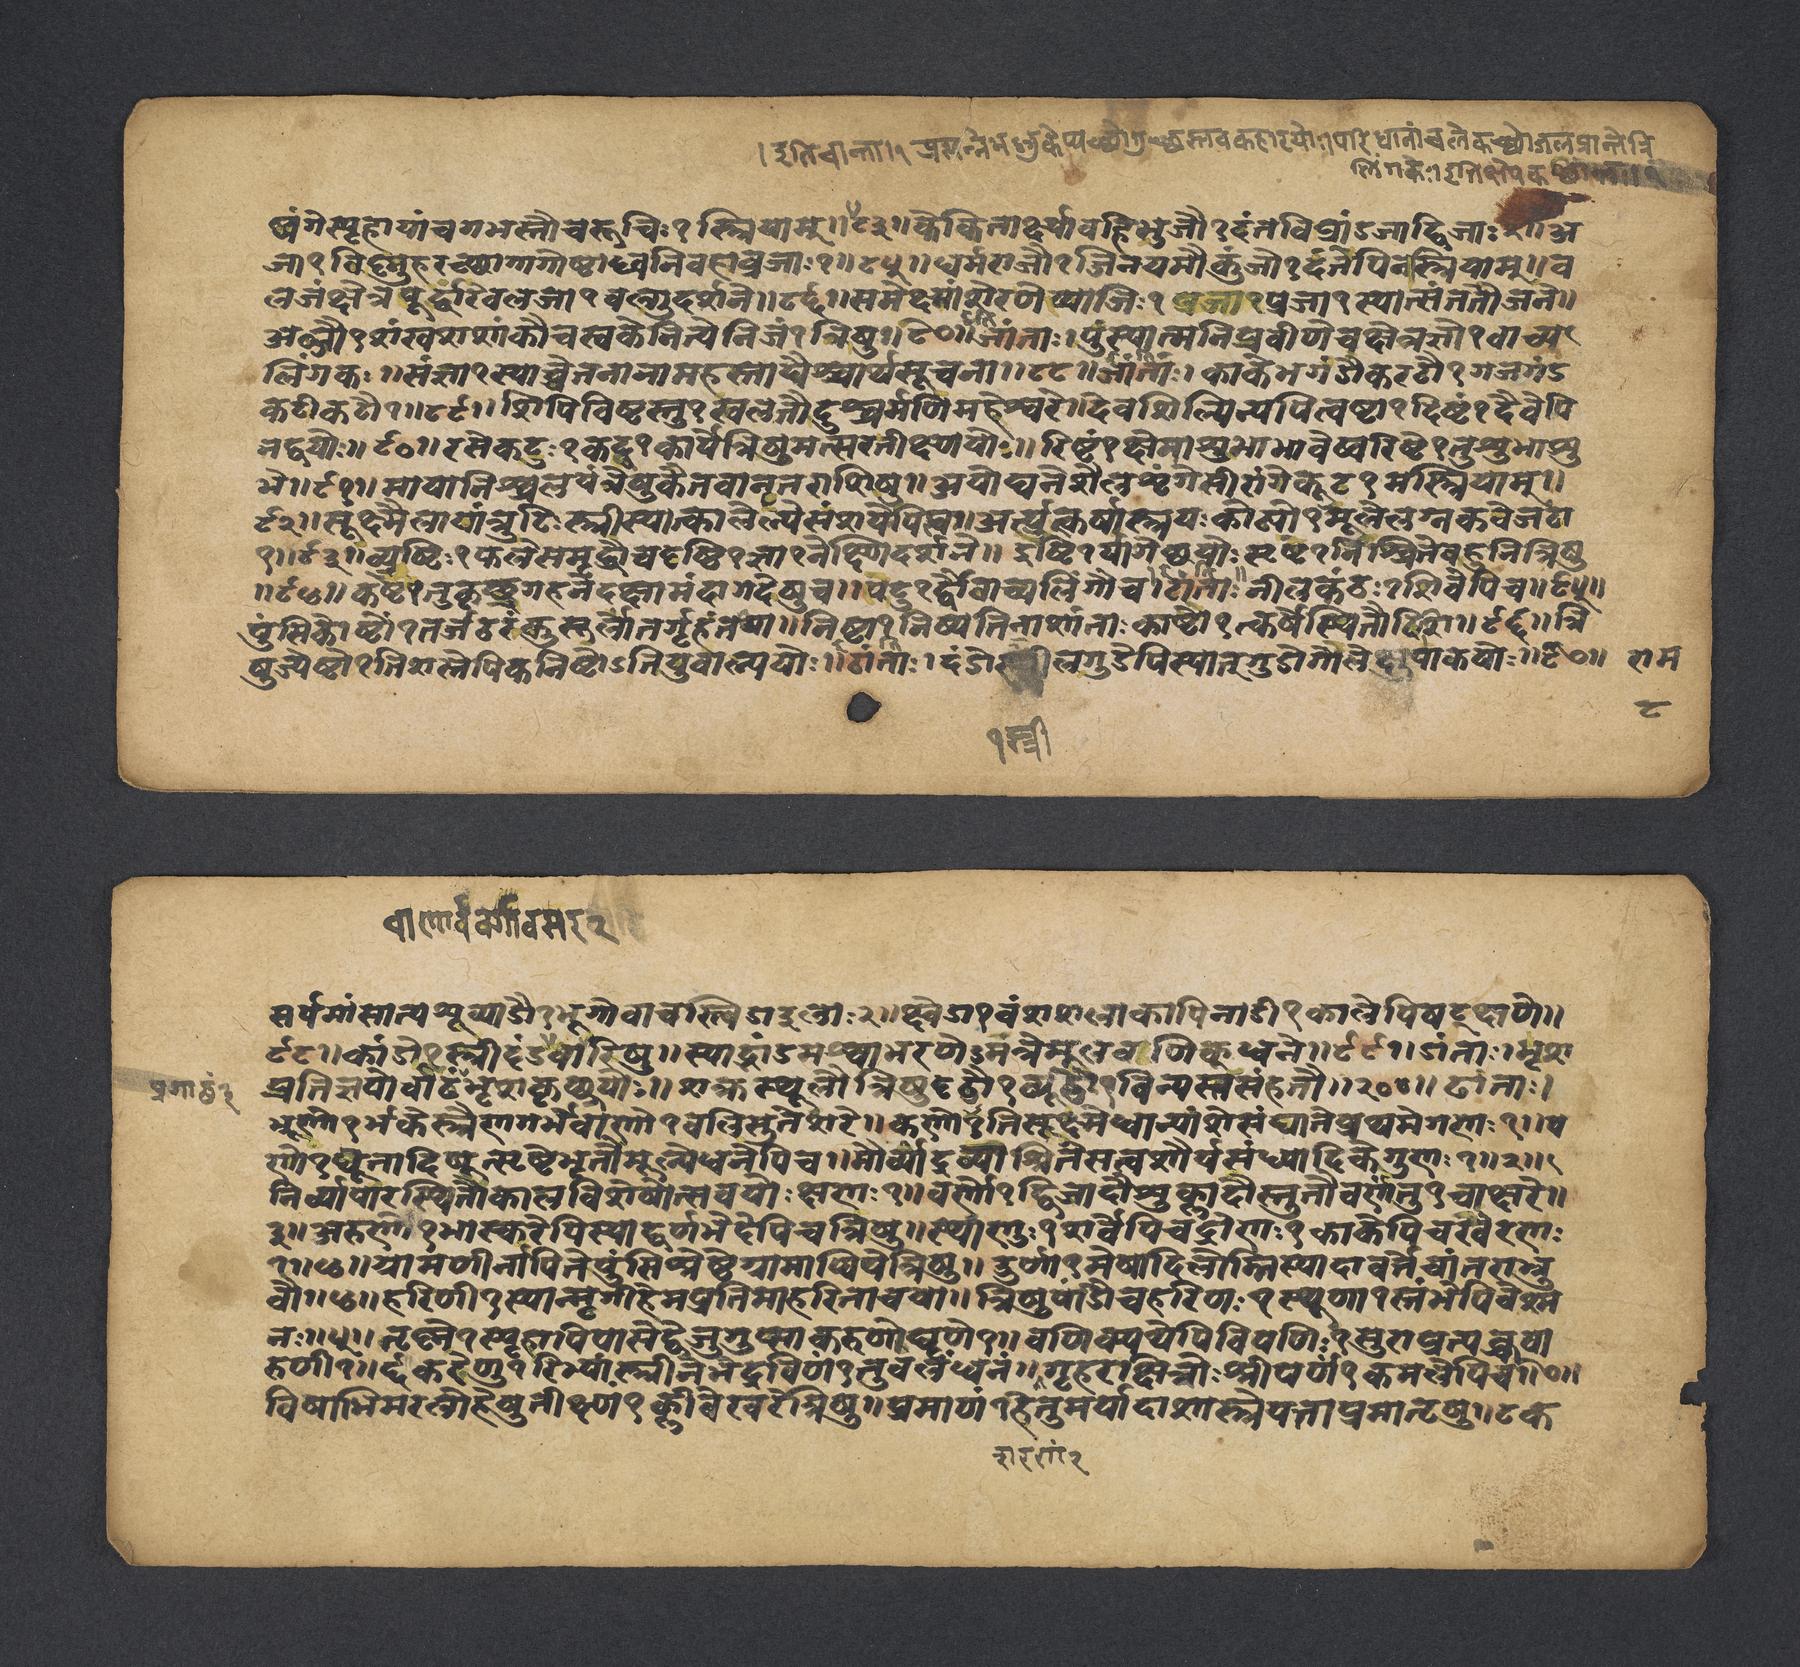 । इति चान्ता। १ प्रसन्ने भल्लुकेप्यच्छो गुच्छस्तबकहारयोः। परिधानांचलेकच्छो जलप्रान्तेत्रि
लिंगकः। इति क्षेपक
ष्वंगेस्पृहायांचगभस्तौचरुचिः१ स्त्रियाम्॥ ८३॥ केकितार्क्ष्यावहिभुजौ१ दंतविप्रांऽजाद्विजाः२॥ अ
जा१ विष्णुहरच्छागागोष्टाध्वनिवहाव्रजाः१॥ ८५॥ धर्मराजौ१ जिनयमौकुंजो१ दंतेपिनस्त्रियाम्॥ व
लजंक्षेत्रेपूर्द्वारेवलजा१ वल्गुदर्शने॥ ८६॥ समेक्ष्मांशेरणेप्याजिः१ प्रजा१ प्रजा१ स्यात्संततौजने॥
अब्जौ१ शंखशशांकौचस्वकेनित्येनिजं१ त्रिषु॥ ८७॥ जांताः। पुंस्यात्मनिप्रवीणेचक्षेत्रज्ञो१ वाच्य
लिंगकः॥ संज्ञा१ स्याच्चेतनानामहस्ताद्यैश्चार्थसूचना॥ ८८॥ ञांताः। काकेभगंडौकरटौ१ गजगंड
कटीकटौ१॥ ८९॥ शिपिविष्टस्तु१ खलतौदुश्चर्मणिमहेश्वरे॥ देवशिल्पिन्यपित्वष्टा१ दिष्टं१ दैवेपि
नद्वयोः॥ ९०॥ रसेकटुः१ कट्व१ कार्येत्रिषुमत्सरतीक्ष्णयोः॥ रिष्टं१ क्षेमाशुभाभावेष्वरिष्टे१ तुशुभाशु
भे॥ ९१॥ मायानिश्चलयंत्रेषुकैतवानृतराशिषु॥ अयोघनेशैलशृंगेसीरांगेकूट१ मस्त्रियाम्॥
९२॥ सूक्ष्मैलायांत्रुटिः स्त्रीस्यात्कालेल्पेसंशयेपिसा॥ अर्त्त्युत्कर्षास्त्रयः कोट्यो१ मूलेलग्नकचेजटा
१॥ ९३॥ व्युष्टिः१ फलेसमृद्धौचदृष्टि१ र्ज्ञा१ नेक्ष्णिदर्शने॥ इष्टि१ र्यागेच्छयोः सृष्टं१ निश्चितेबहुनित्रिषु
॥ ९४॥ कष्टे१ तुकृच्छ्रगहनेदक्षामंदागदेषुच॥ पटु१ र्द्वौवाच्यलिंगौच॥ टांताः॥ नीलकंठः१ शिवेपिच॥ ९५॥
पुंसिकोष्टों१ तर्जठरंकुसूलोंतर्गृहंतथा॥ निष्टा१ निष्पत्तिनाशांताः काष्टो१ त्कर्षेस्थितौदिशि॥ ९६॥ त्रि
षुज्येष्टो१ तिशस्तेपिकनिष्टोऽतियुवाल्पयोः॥ ठांताः। दंडो लगुडेपिस्याद्गुडोगोलेक्षुपाकयोः॥ ९७॥ राम
८
१ स्त्री
सर्पमांसात्पशूव्याडौ१ भूगोवाचस्त्विडाइलाः२॥ क्ष्वेडा१ वंशशलाकापिनाडी१ कालेपिषट्क्षणे॥
९८॥ कांडो१ स्त्रीदंडबारिषु॥ स्याद्भांडमश्वाभरणेऽमंत्रेमूलवणिक्ध्वने॥ ९९॥ डांताः। भृश
प्रतिज्ञयोर्बाढं१ भृशकृच्छ्रयोः॥ शक्तस्थूलौत्रिषुदृढौ१ व्यूढौ१ विन्यस्तसंहतौ॥ २००॥ ढांताः।
प्रगाढं२
भ्रूणो१ र्भकेस्त्रैणगर्भेबाणो१ बलिसुतेशरे॥ कणो१ तिसूक्ष्मेधान्यांशेसंघातेप्रथमेगणः१॥ प
णो१ द्यूतादिषूत्सृष्टेभृतौमूल्येधनेपिच॥ मौर्व्यांद्रव्याश्रितेसत्वशौर्यसंध्यादिकेगुणः१॥ २॥
निर्व्यापारस्थितौकालविशेषोत्सवयोः क्षणः१॥ वर्णो१ द्विजादौशुक्लादौस्तुतौवर्णंतु१ चाक्षरे॥
३॥ अरुणो१ भास्करेपिस्याद्वर्णभेदेपिचत्रिषु॥ स्थाणुः१ शर्वेपिचद्रोणः१ काकेपिचरवेरणः
१॥ ४॥ ग्रामणीर्नापितेपुंसिश्रेष्टेग्रामाधिपेत्रिषु॥ ऊर्णा१ मेषादिलोम्निस्यादावर्त्तेचांतराभ्रु
वौ॥ ४॥ हरिणी१ स्यान्मृगीहेमप्रतिमाहरिताचया॥ त्रिषुपांडौचहरिणः१ स्थूणा१ स्तंभेपिवेश्म
नः॥ ५॥ तृष्णे१ स्पृहापिपासेद्वेजुगुप्साकरुणेघृणे१॥ वणिक्पथेपिविपणिः१ सुराप्रत्यक्चवा
रुणी१॥ ६ करेणु१ रिभ्यांस्त्रीनेभेद्रविणं१ तुबलंधनं॥ गृहरक्षित्रोः श्रीपर्णं१ कमलेपिच॥ ७॥
विषाभिमरलोहेषुतीक्ष्णं१ क्लीबेखरेत्रिषु॥ प्रमाणं१ हेतुमर्यादाशास्त्रेयत्ताप्रमातृषु॥ ८ क
कारणं२